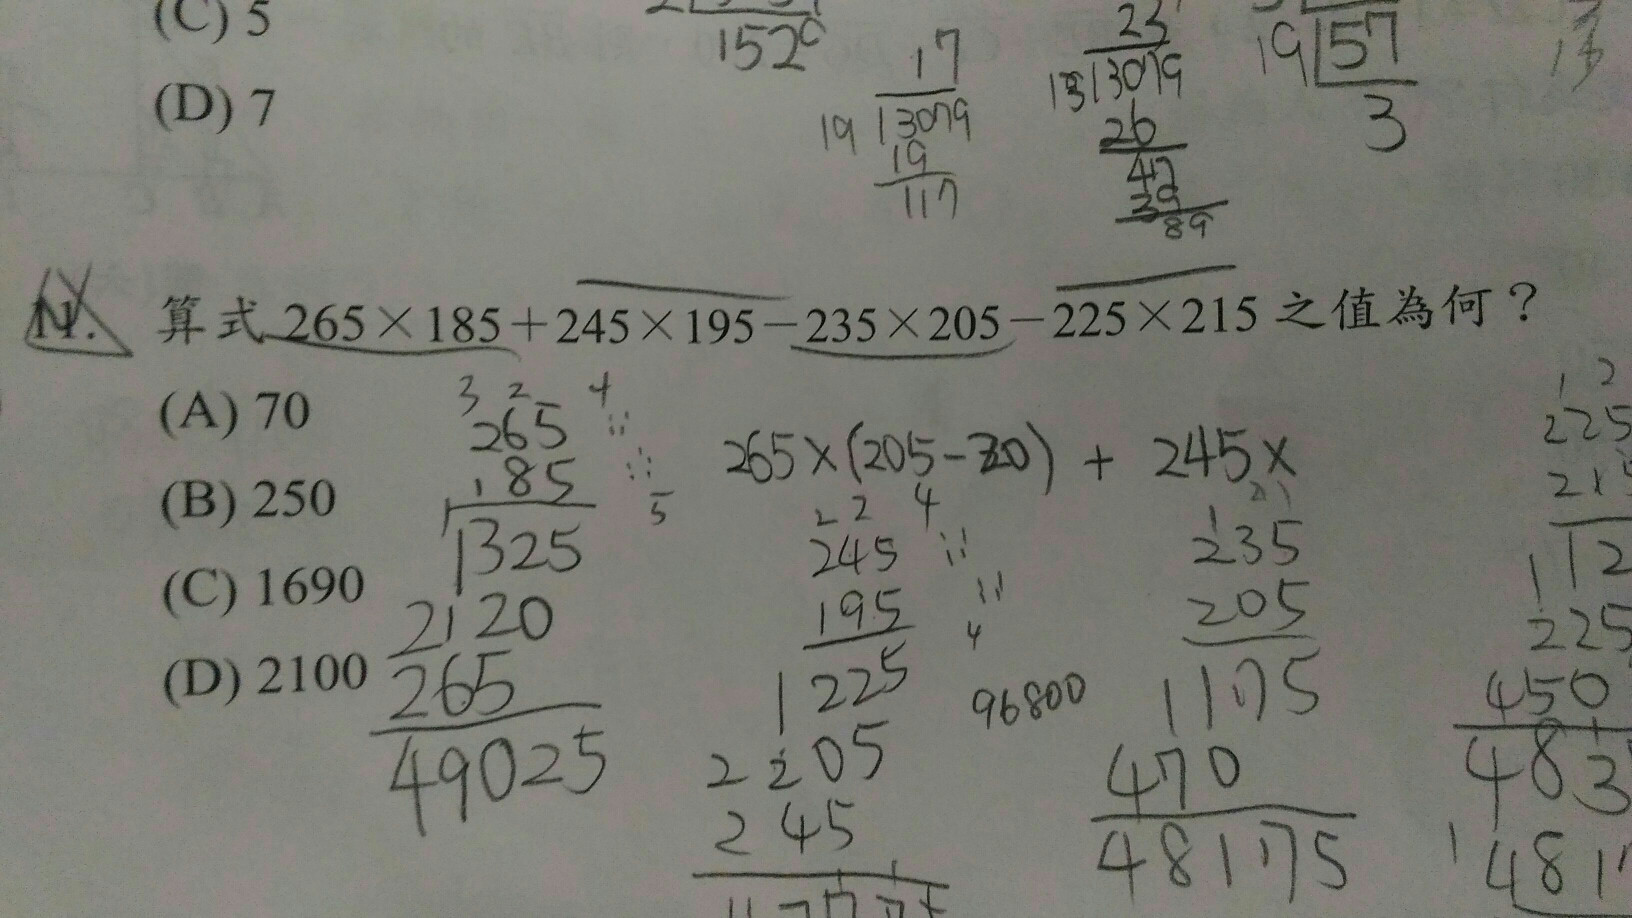 (C) 5
(D) 7
152
17
19 13079
19
117
23
13 13079
26
47
39
89
19 57
3
算式 265×185+245×195−235×205−225×215 之值為何？
(A) 70
(B) 250
(C) 1690
(D) 2100
3 2 4
265
185
5
1325
2120
265
49025
265×(205−20) + 245×
2 2 4
245
195
4
1225
2205
245
96800
1
235
205
1175
470
48175
1 2
225
215
112
225
450
483
481